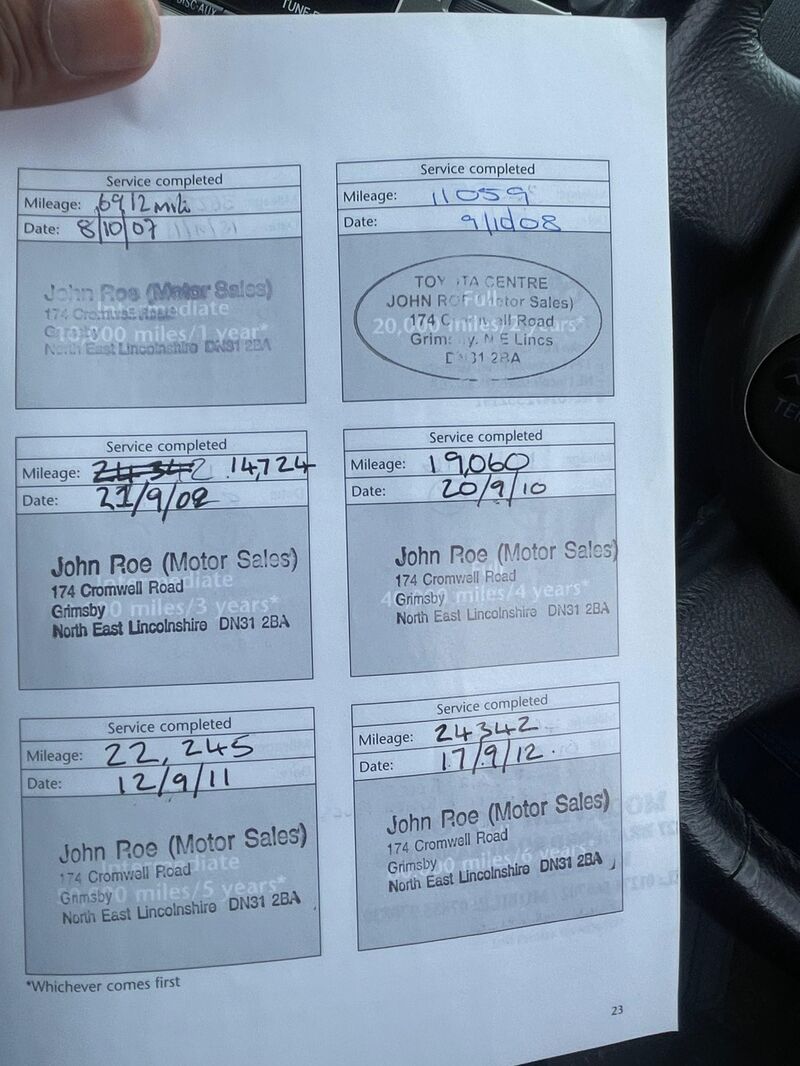 DISC·AUX
TUNE·F
Service completed
Mileage: 6912 mili
Date: 8/10/07
John Roe (Motor Sales)
174 Cromwell Road
Grimsby
North East Lincolnshire DN31 2BA
Intermediate
10,000 miles/1 year*
Service completed
Mileage: 11059
Date: 9/10/08
TOYOTA CENTRE
JOHN ROE (Motor Sales)
174 Cromwell Road
Grimsby. N E Lincs
DN31 2BA
Full
20,000 miles/2 years*
Service completed
Mileage: 24342 14,724
Date: 21/9/09
John Roe (Motor Sales)
174 Cromwell Road
Grimsby
North East Lincolnshire DN31 2BA
Intermediate
0 miles/3 years*
Service completed
Mileage: 19,060
Date: 20/9/10
John Roe (Motor Sales)
174 Cromwell Road
Grimsby
North East Lincolnshire DN31 2BA
Full
4 miles/4 years*
Service completed
Mileage: 22,245
Date: 12/9/11
John Roe (Motor Sales)
174 Cromwell Road
Grimsby
North East Lincolnshire DN31 2BA
Intermediate
miles/5 years*
Service completed
Mileage: 24342
Date: 17/9/12.
John Roe (Motor Sales)
174 Cromwell Road
Grimsby
North East Lincolnshire DN31 2BA
miles/6 years*
*Whichever comes first
23